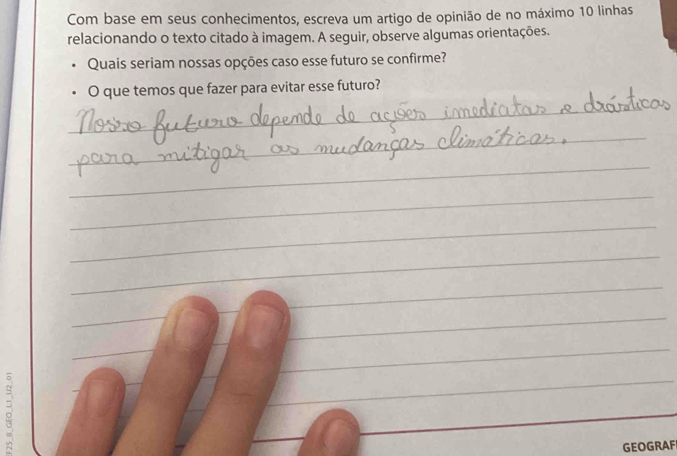 Com base em seus conhecimentos, escreva um artigo de opinião de no máximo 10 linhas
relacionando o texto citado à imagem. A seguir, observe algumas orientações.
• Quais seriam nossas opções caso esse futuro se confirme?
• O que temos que fazer para evitar esse futuro?
Nosso futuro depende de ações imediatas e drásticas
para mitigar as mudanças climáticas.
F25_8_GEO_L1_U2_01
GEOGRAF